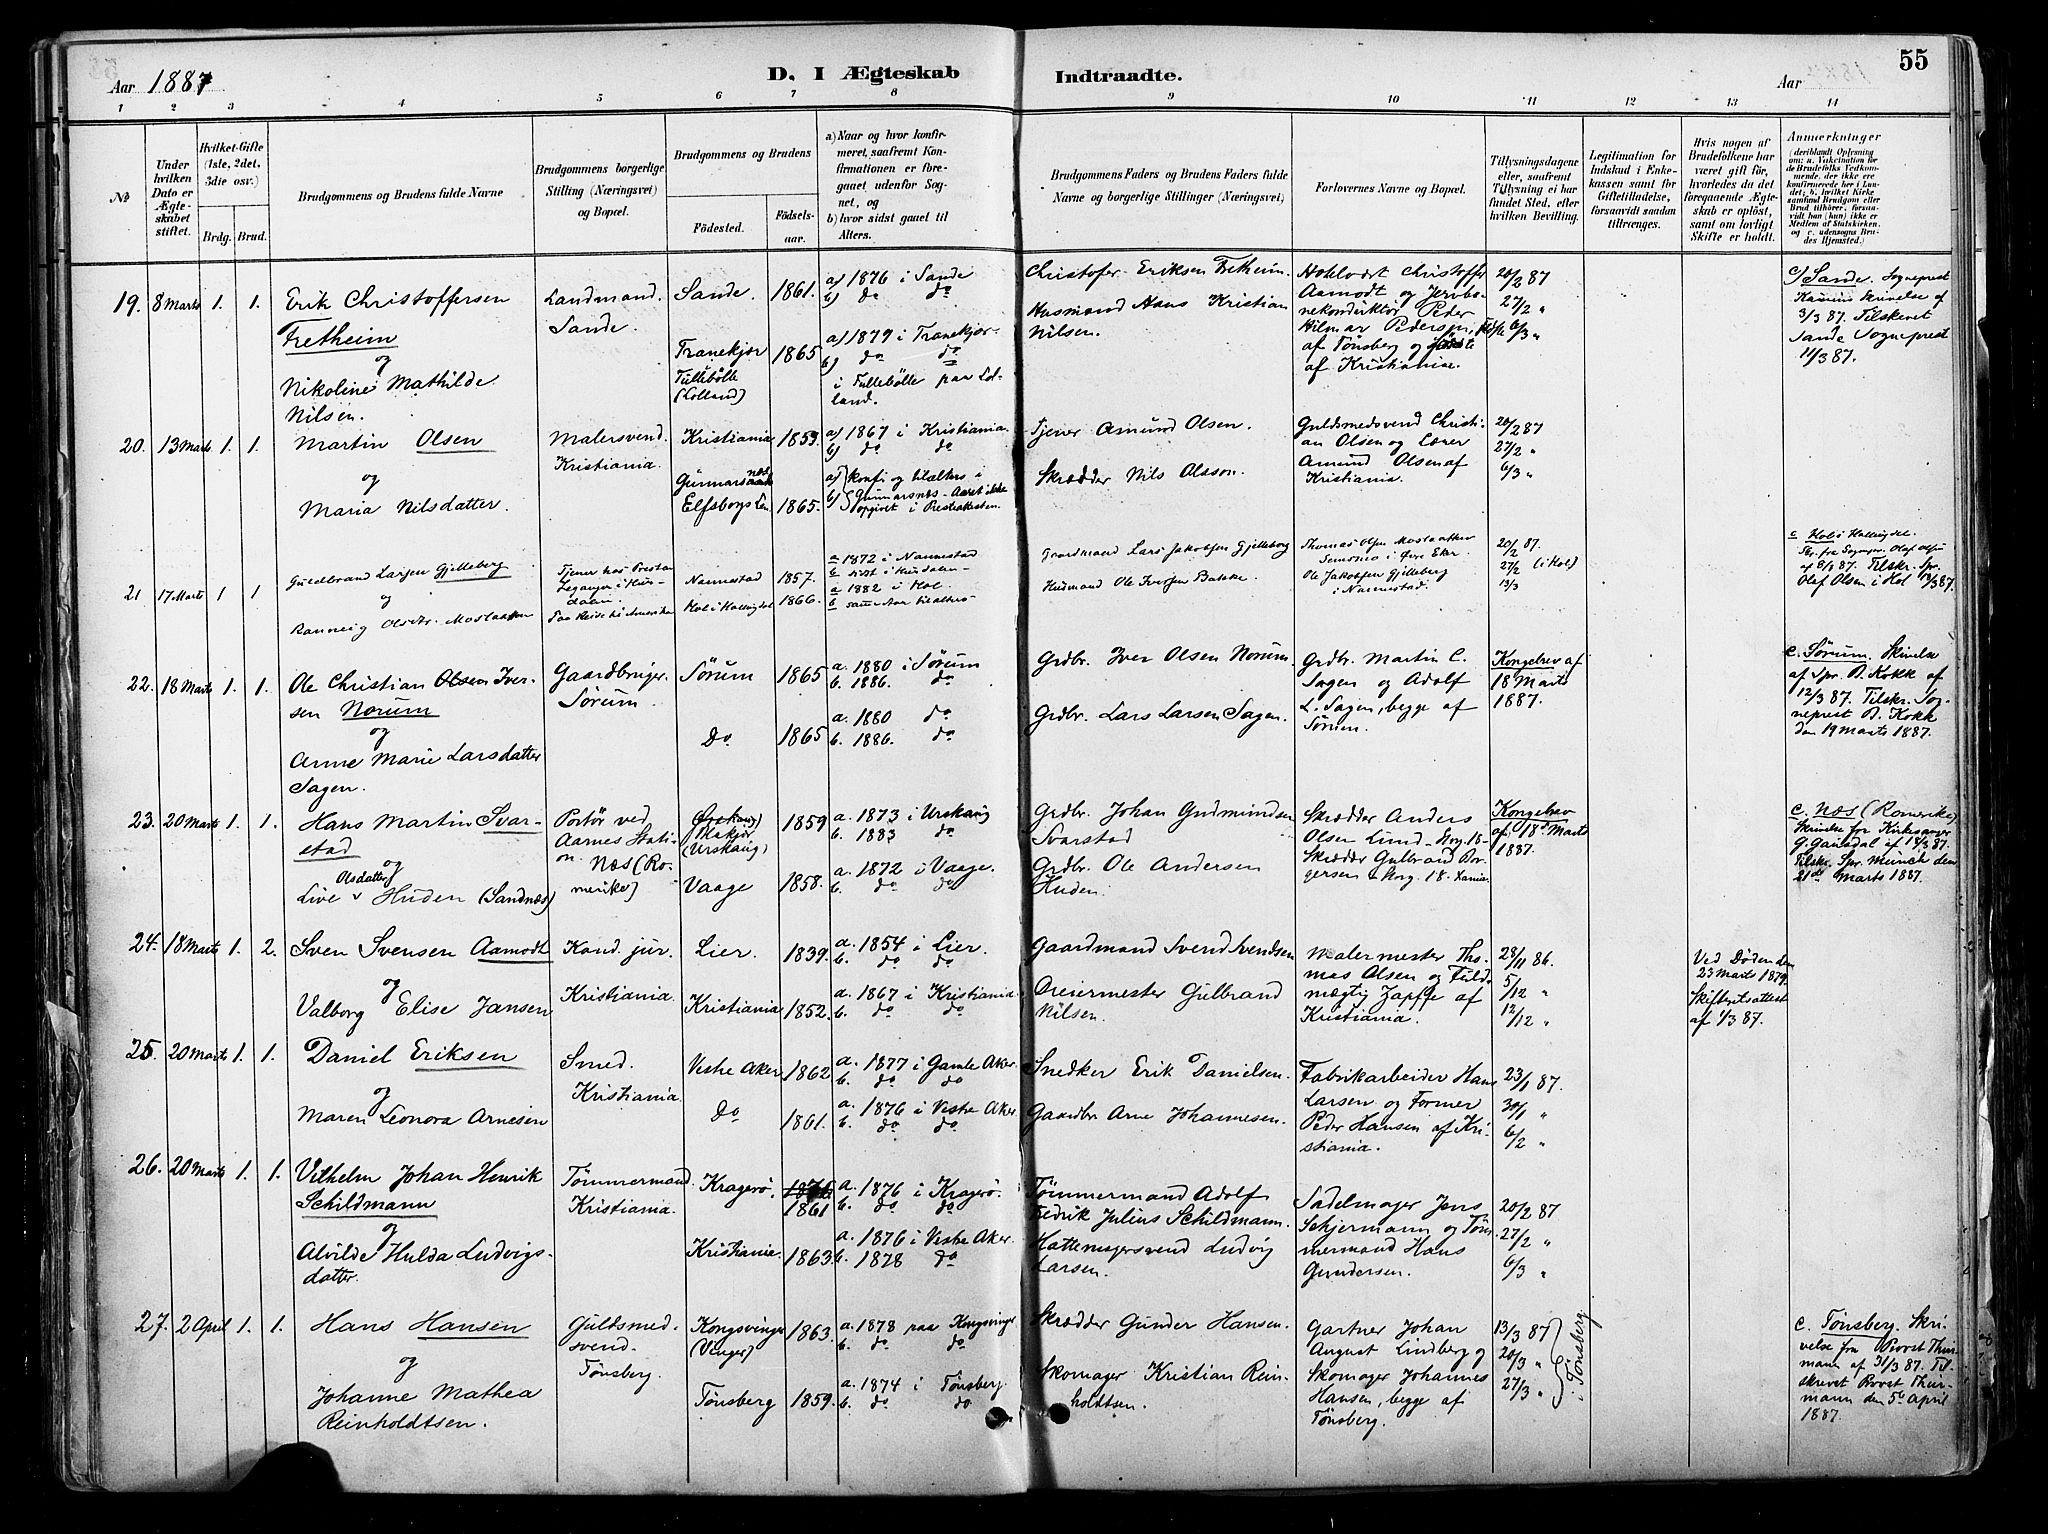 Aar 1887
D. I Ægteskab
Indtraadte.
Aar
55
1 2 3 4 5 6 7 8 9 10 11 12 13 14
№
Under hvilken Dato er Ægteskabet stiftet.
Hvilket-Gifte (1ste, 2det, 3die osv.)
Brdg. Brud.
Brudgommens og Brudens fulde Navne
Brudgommens borgerlige Stilling (Næringsvei) og Bopæl.
Brudgommens og Brudens
Födested.
Födsels-aar.
a) Naar og hvor konfirmeret, saafremt Konfirmationen er foregaaet udenfor Sognet, og
b) hvor sidst gaaet til Alters.
Brudgommens Faders og Brudens Faders fulde Navne og borgerlige Stillinger (Næringsvei)
Forlovernes Navne og Bopæl.
Tillysningsdagene eller, saafremt Tillysning ei har fundet Sted, efter hvilken Bevilling.
Legitimation for Indskud i Enkekassen samt for Giftetilladelse, forsaavidt saadan tiltrænges.
Hvis nogen af Brudefolkene har været gift för, hvorledes da det foregaaende Ægteskab er oplöst, samt om lovligt Skifte er holdt.
Anmerkninger
(deriblandt Oplysning om: a. Vakcination for de Brudefolks Vedkommende, der ikke ere konfirmerede her i Landet; b. hvilket Kirkesamfund Brudgom eller Brud tilhörer, forsaavidt han (hun) ikke er Medlem af Statskirken, og c. udensogns Brudes Hjemsted.)
19. 8 Marts 1. 1.
Erik Christoffersen
Fretheim
og
Nikoline Mathilde
Nilsen.
Landmand.
Sande.
Sande. 1861.
Tranekjør
Tullebølle
(Lolland)
1865
a) 1876 i Sande
b) do do
a) 1879 i Tranekjør
b) do do
i Tullebølle paa Lolland.
Christofer Eriksen Fretheim.
Husmand Hans Kristian
Nilsen.
Hotelvært Christoffer
Aamodt og Jernbanekonduktør Peder
Hilmar Pedersen,
af Tønsberg og
af Kristiania.
20/2 87
27/2 "
6/3 "
c/ Sande. Sogneprest
Skrivelse af
3/3 87. Tilskrevet
Sande Sogneprest
11/3 87.
20. 13 Marts 1. 1.
Martin Olsen
og
Maria Nilsdatter.
Malersvend.
Kristiania.
Kristiania 1859.
Gunnarsnæs
Elfsborgs Len. 1865.
a) 1867 i Kristiania.
b) do do
a) konf. og til alters i
b) Gunnarsnæs - Aaret ikke
opgivet i Presteattesten.
Tjener Amund Olsen.
Skrædder Nils Olsson.
Guldsmedsvend Christian Olsen og
Amund Olsen af
Kristiania.
20/2 87
27/2 "
6/3 "
21 17 Marts 1 1
Guldbrand Larsen Gjelleberg
og
Ranneig Olsdtr.
Tjener hos Presten
Paa Reise til Amerika
Nannestad 1857.
Hol i Hallingdal 1866.
a 1872 i Nannestad
b sidst i Hurdalen
a 1882 i Hol
b samme Aar til alters
Gaardmand Lars Jakobsen Gjelleberg
Husmand Ole Iversen Bakke
Thomas Olsen
i Øvre Eker
Ole Jakobsen Gjelleberg
i Nannestad.
20/2 87.
27/2 (i Hol)
13/3
c Hol i Hallingdal.
Skr. fra Sognepr. Olaf Olsen
af 8/3 87. Tilskr. Spr.
Olaf Olsen i Hol 18/3 87.
22. 18 Marts 1. 1.
Ole Christian Olsen Iversen Norum
og
Anne Marie Larsdatter
Sagen.
Gaardbruger.
Sørum.
Sørum 1865
Do 1865
a. 1880 i Sørum
b. 1886. do
a. 1880 do
b. 1886. do
Grdbr. Iver Olsen Norum.
Grdbr. Lars Larsen Sagen.
Grdbr. Martin C.
Sagen og Adolf
L. Sagen, begge af
Sørum.
Kongebrev af
18 Marts
1887.
c. Sørum. Skrivelse
af Spr. B. Kokk af
12/3 87. Tilskr. Sogneprest B. Kokk
den 19 Marts 1887.
23. 20 Marts 1. 1.
Hans Martin Svarstad
og
Olsdatter
Live v Huden (Sandnæs)
Portør ved
Aarnes Station. Næs (Romerike)
Blakjer
(Urskaug)
Vaage
1859
1858.
a. 1873 i Urskaug
b. 1883 do
a. 1872 i Vaage.
b. do do
Grdbr. Johan Gudmundsen
Svarstad
Grdbr. Ole Andersen
Huden.
Skrædder Anders
Olsen Lund
Skrædder Gulbrand Borgersen
Kongebrev
af 18de Marts
1887.
c. Næs (Romerike)
Skrivelse
af 18/3 87.
Tilskr. Spr. Münch den
21de Marts 1887.
24. 18 Marts 1. 2.
Sven Svensen Aamodt
og
Valborg Elise Jansen
Kand. jur.
Kristiania.
Lier. 1839.
Kristiania 1852.
a. 1854 i Lier.
b. do do
a. 1867 i Kristiania.
b. do do
Gaardmand Svend Svendsen
Dreiermester Gulbrand
Nilsen.
Malermester Thomas Olsen og Fuldmægtig Zapffe af
Kristiania.
28/11 86.
5/12 "
12/12 "
Ved Døden den
23 Marts 1879.
Skifteretsattest
af 1/3 87.
25. 20 Marts 1. 1.
Daniel Eriksen
og
Maren Leonora Arnesen
Smed.
Kristiania
Vestre Aker 1862
Do 1861.
a. 1877 i Gamle Aker
b. do do
a. 1876 i Vestre Aker.
b. do do
Snedker Erik Danielsen.
Gaardbr Arne Johannesen.
Fabrikarbeider Hans
Larsen og Former
Peder Hansen af Kristiania.
23/1 87.
30/1 "
6/2 "
26. 20 Marts 1. 1.
Vilhelm Johan Henrik
Schildmann
og
Alvilde Hulda Ludvigsdatter.
Tømmermand.
Kristiania.
Kragerø. 1876
1861
Kristiania. 1863
a. 1876 i Kragerø.
b. do do
a. 1876 i Vestre Aker.
b. 1878 do
Tømmermand Adolf
Fredrik Julius Schildmann.
Hattemagersvend Ludvig
Larsen.
Sadelmager Jens
Schjermann og Tømmermand Hans
Gundersen.
20/2 87
27/2 "
6/3 "
27. 2 April 1. 1.
Hans Hansen
og
Johanne Mathea
Reinholdtsen.
Guldsmedsvend.
Tønsberg.
Kongsvinger
(Vinger)
1863.
Tønsberg 1859.
a. 1878 paa Kongsvinger
b. do do
a. 1874 i Tønsberg.
b. do do
Skrædder Gunder Hansen.
Skomager Kristian Reinholdtsen.
Gartner Johan
August Lindberg og
Skomager Johannes
Hansen, begge af
Tønsberg.
13/3 87
20/3 "
27/3 "
i Tønsberg.
c. Tønsberg. Skrivelse fra Provst Thurmann af 31/3 87. Tilskrevet Provst Thurmann den 5te April
1887.